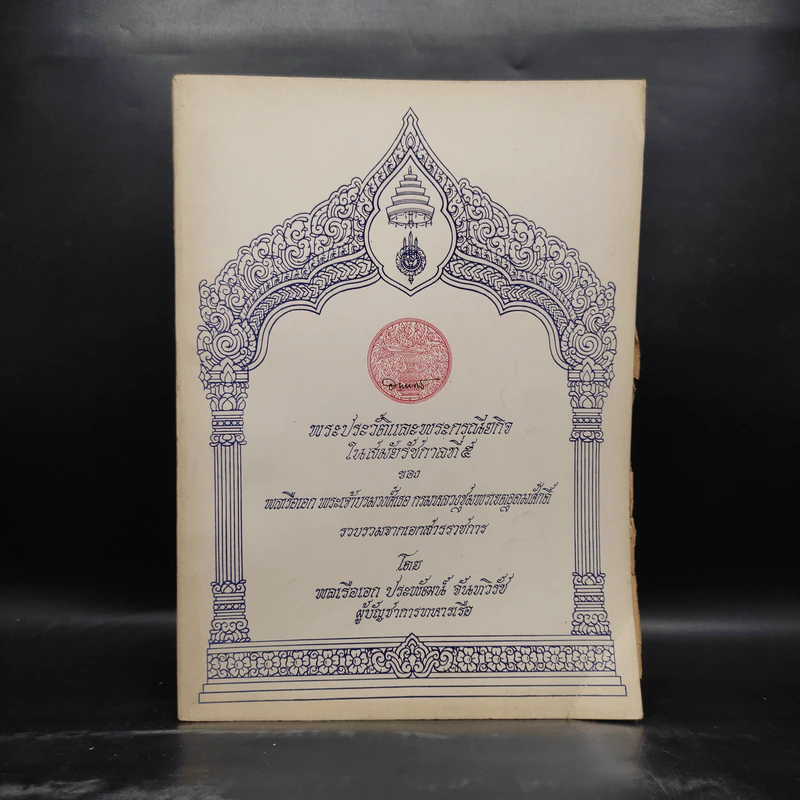 พระประวัติและพระกรณียกิจ
ในสมัยรัชกาลที่ ๕
ของ
พลเรือเอก พระเจ้าบรมวงศ์เธอ กรมหลวงชุมพรเขตอุดมศักดิ์
รวบรวมจากเอกสารราชการ
โดย
พลเรือเอก ประพัฒน์ จันทวิรัช
ผู้บัญชาการทหารเรือ